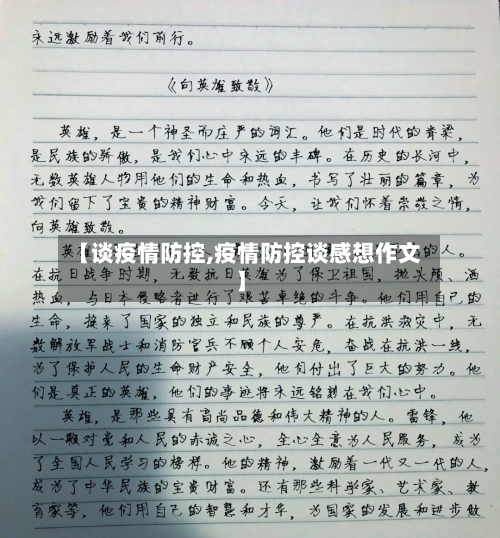 永远激励着我们前行。
《向英雄致敬》
英雄，是一个神圣而庄严的词汇。他们是时代的脊梁，
是民族的骄傲，是我们心中永远的丰碑。在历史的长河中，
无数英雄人物用他们的生命和热血，书写了壮丽的篇章，为
我们留下了宝贵的精神财富。今天，让我们怀着崇敬之情，
向英雄致敬。
英雄
的人。
【谈疫情防控,疫情防控谈感想作文
】
在抗日战争时期，无数抗日英雄为了保卫祖国，抛头颅、洒
热血，与日本侵略者进行了艰苦卓绝的斗争。他们用自己的
生命，换来了国家的独立和民族的尊严。在抗洪救灾中，无
数解放军战士和消防官兵不顾个人安危，奋战在抗洪一线，
为了保护人民的生命财产安全，他们付出了巨大的努力。他
们是真正的英雄，他们的事迹将永远铭刻在我们心中。
英雄，是那些具有高尚品德和伟大精神的人。雷锋，他
以一颗对党和人民的赤诚之心，全心全意为人民服务，成为
了全国人民学习的榜样。他的精神，激励着一代又一代的人，
成为了中华民族的宝贵财富。还有那些科学家、艺术家、教
育家等，他们用自己的智慧和才华，为国家的发展和进步做